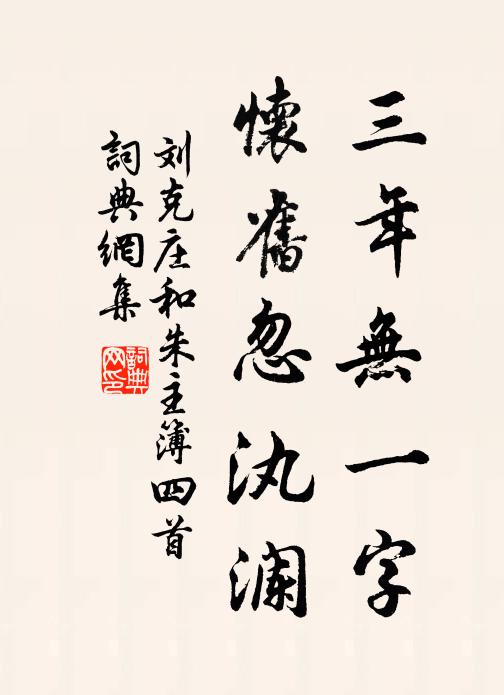 三年無一字
懷舊忽汍澜
刘克庄和朱主簿四首
詞典網集
詞典网印